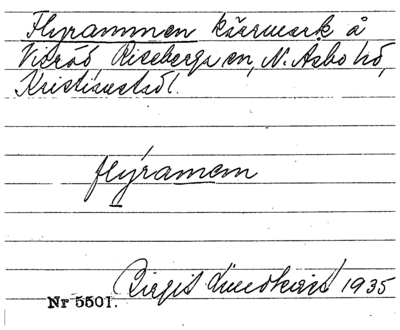 Flyrammen kärrmark å
Vidröd Riseberga sn, N. Åsbo hd,
Kristianstadsl.
flýramen
Birgit Lundkvist 1935
Nr 5501.